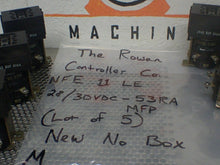 MACHIN
The Rowan
Controller Co.
NFE 11 LE
28/30VDC-53RA
MFP
(Lot of 5)
New No Box
M